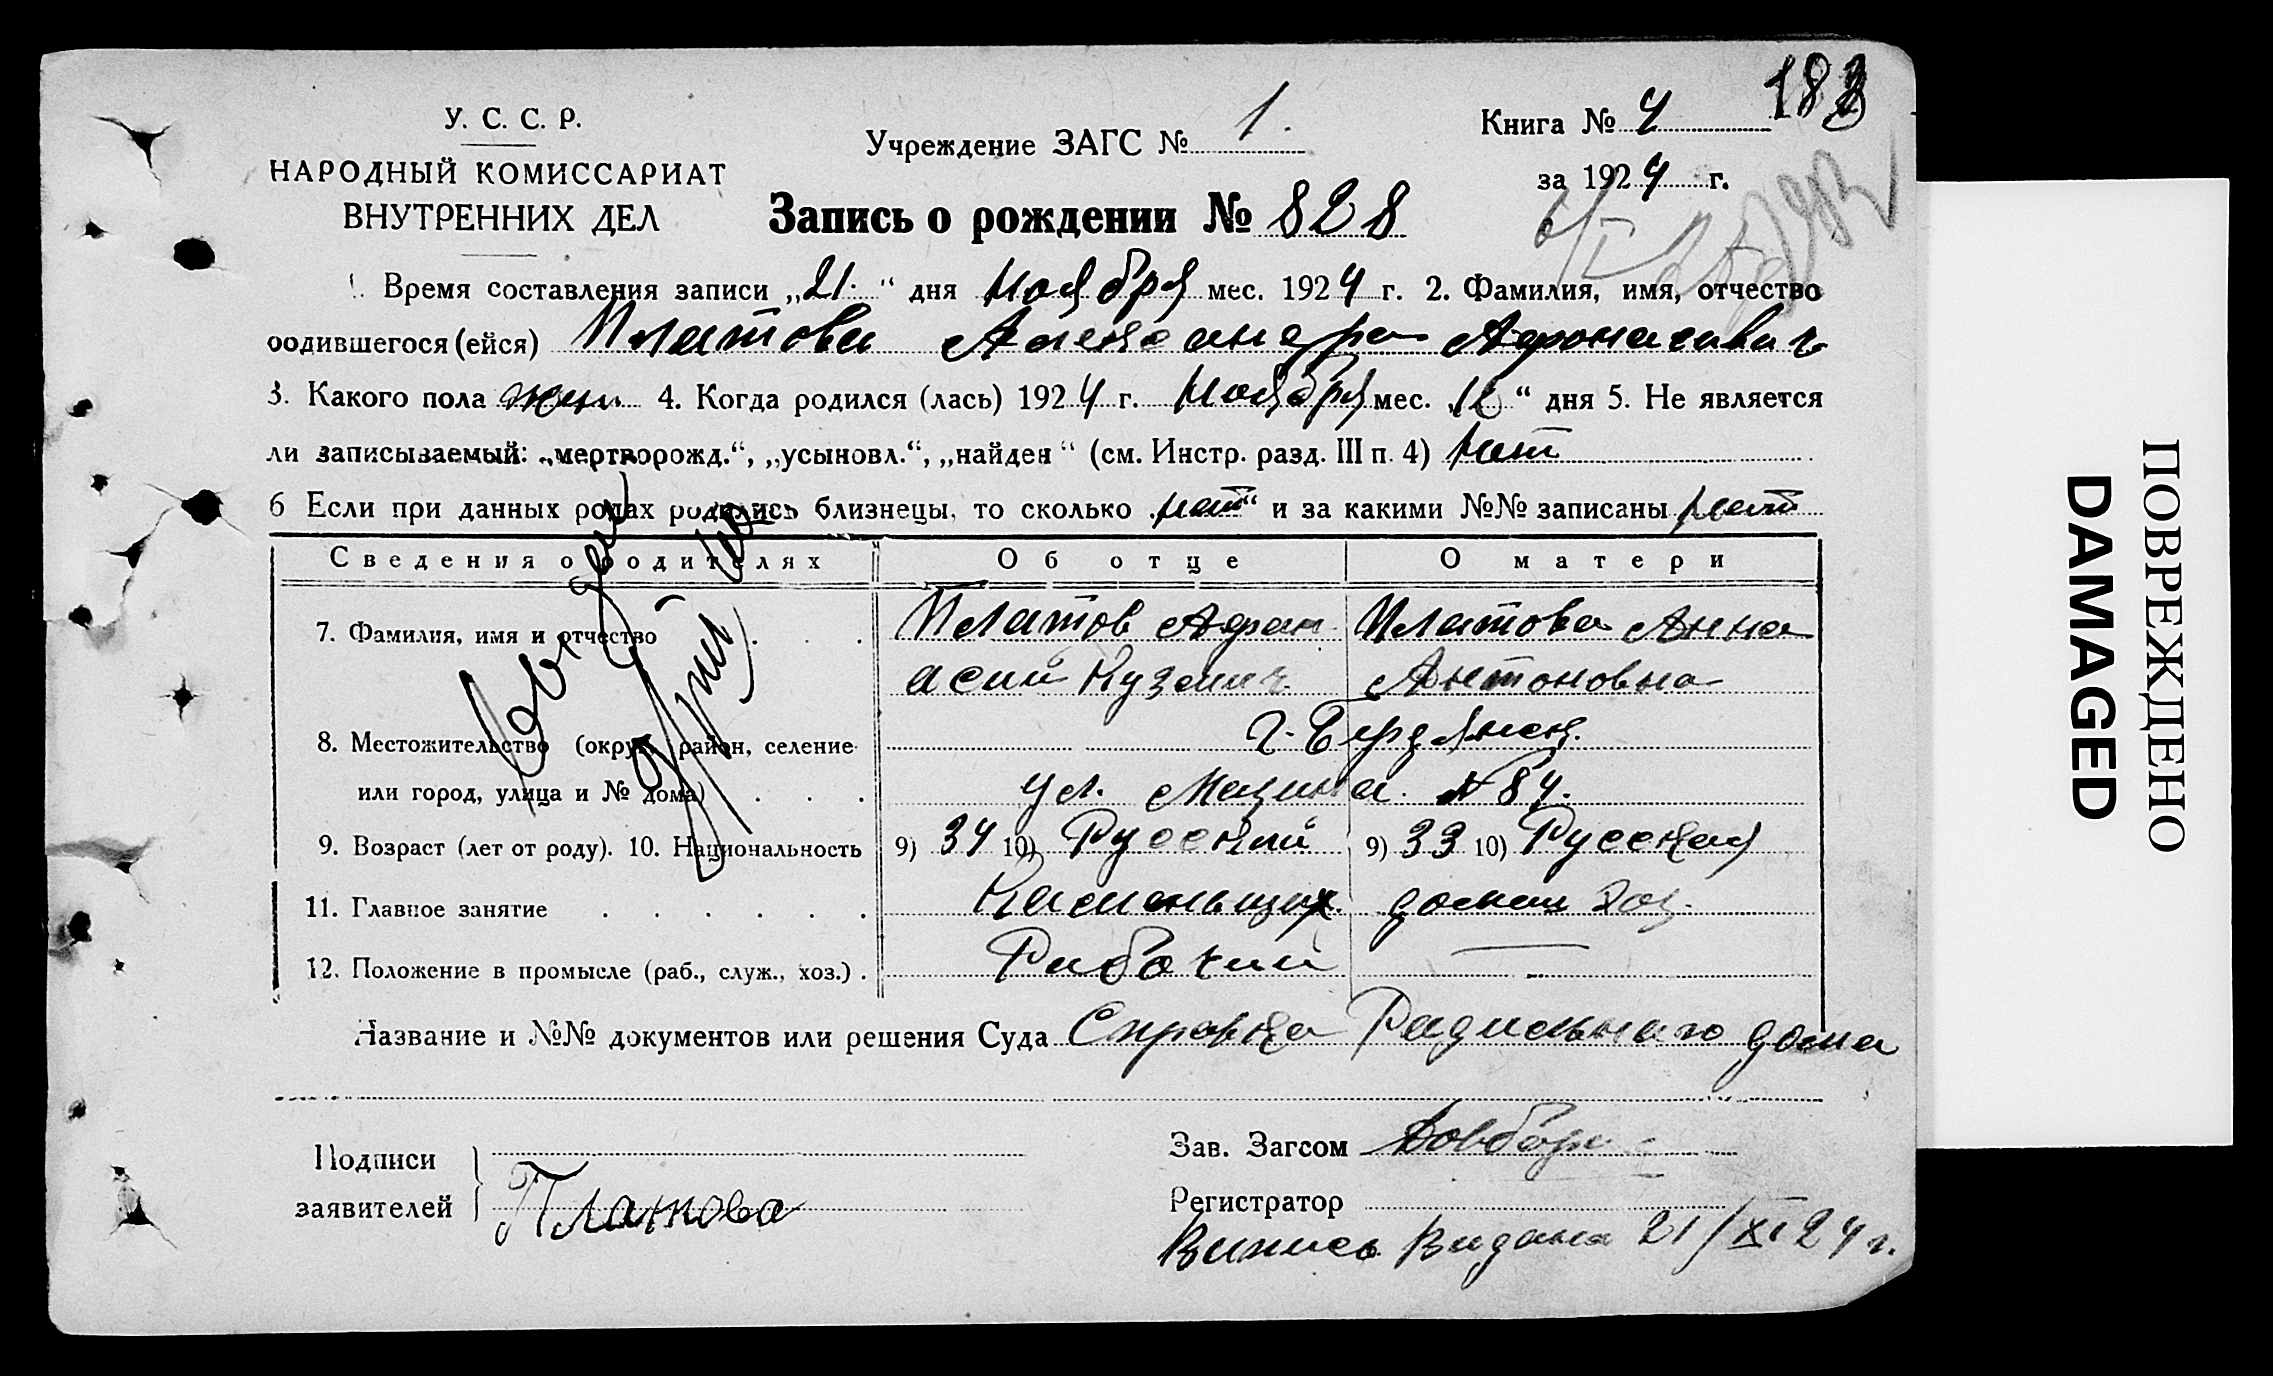 183
У. С. С. Р.
НАРОДНЫЙ КОМИССАРИАТ
ВНУТРЕННИХ ДЕЛ
Учреждение ЗАГС № 1.
Книга № 4
за 1924 г.
Запись о рождении № 828
1. Время составления записи „21“ дня Ноября мес. 1924 г. 2. Фамилия, имя, отчество
родившегося (ейся) Платова Александра
3. Какого пола жен. 4. Когда родился (лась) 1924 г. Ноября мес. „12“ дня 5. Не является
ли записываемый: „мертворожд.“, „усыновл.“, „найден“ (см. Инстр. разд. III п. 4) нет
6 Если при данных родах родились близнецы, то сколько „нет“ и за какими №№ записаны нет
Сведения о родителях Об отце О матери
7. Фамилия, имя и отчество Платов Афан Платова Анна
асий Кузмич Антоновна
8. Местожительство (округ, район, селение г. Бердянск.
или город, улица и № дома) ул. Мазина. № 84.
9. Возраст (лет от роду). 10. Национальность 9) 34 10) Русский 9) 33 10) Русская
11. Главное занятие Каменьщик. домаш хоз.
12. Положение в промысле (раб., служ., хоз.) . Рабочий —
Название и №№ документов или решения Суда Справка Радильнаго дома
Подписи
заявителей Платова
Зав. Загсом
Регистратор
Випись Видана 21/XI 24 г.
ПОВРЕЖДЕНО
DAMAGED